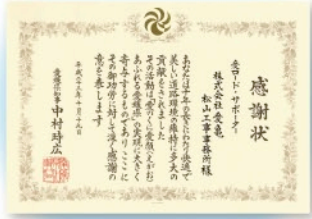 感謝状
愛ロード・サポーター
株式会社 愛亀
松山工事事務所様
あなたは十年の長きにわたり快適で
美しい道路環境の維持に多大の
貢献をされました
その活動は愛のくに愛顔(えがお)
あふれる愛媛県の実現に大きく
寄与するものであり ここに
その御功労に対して深く感謝の
意を表します
平成二十三年十月十九日
愛媛県知事 中村時広